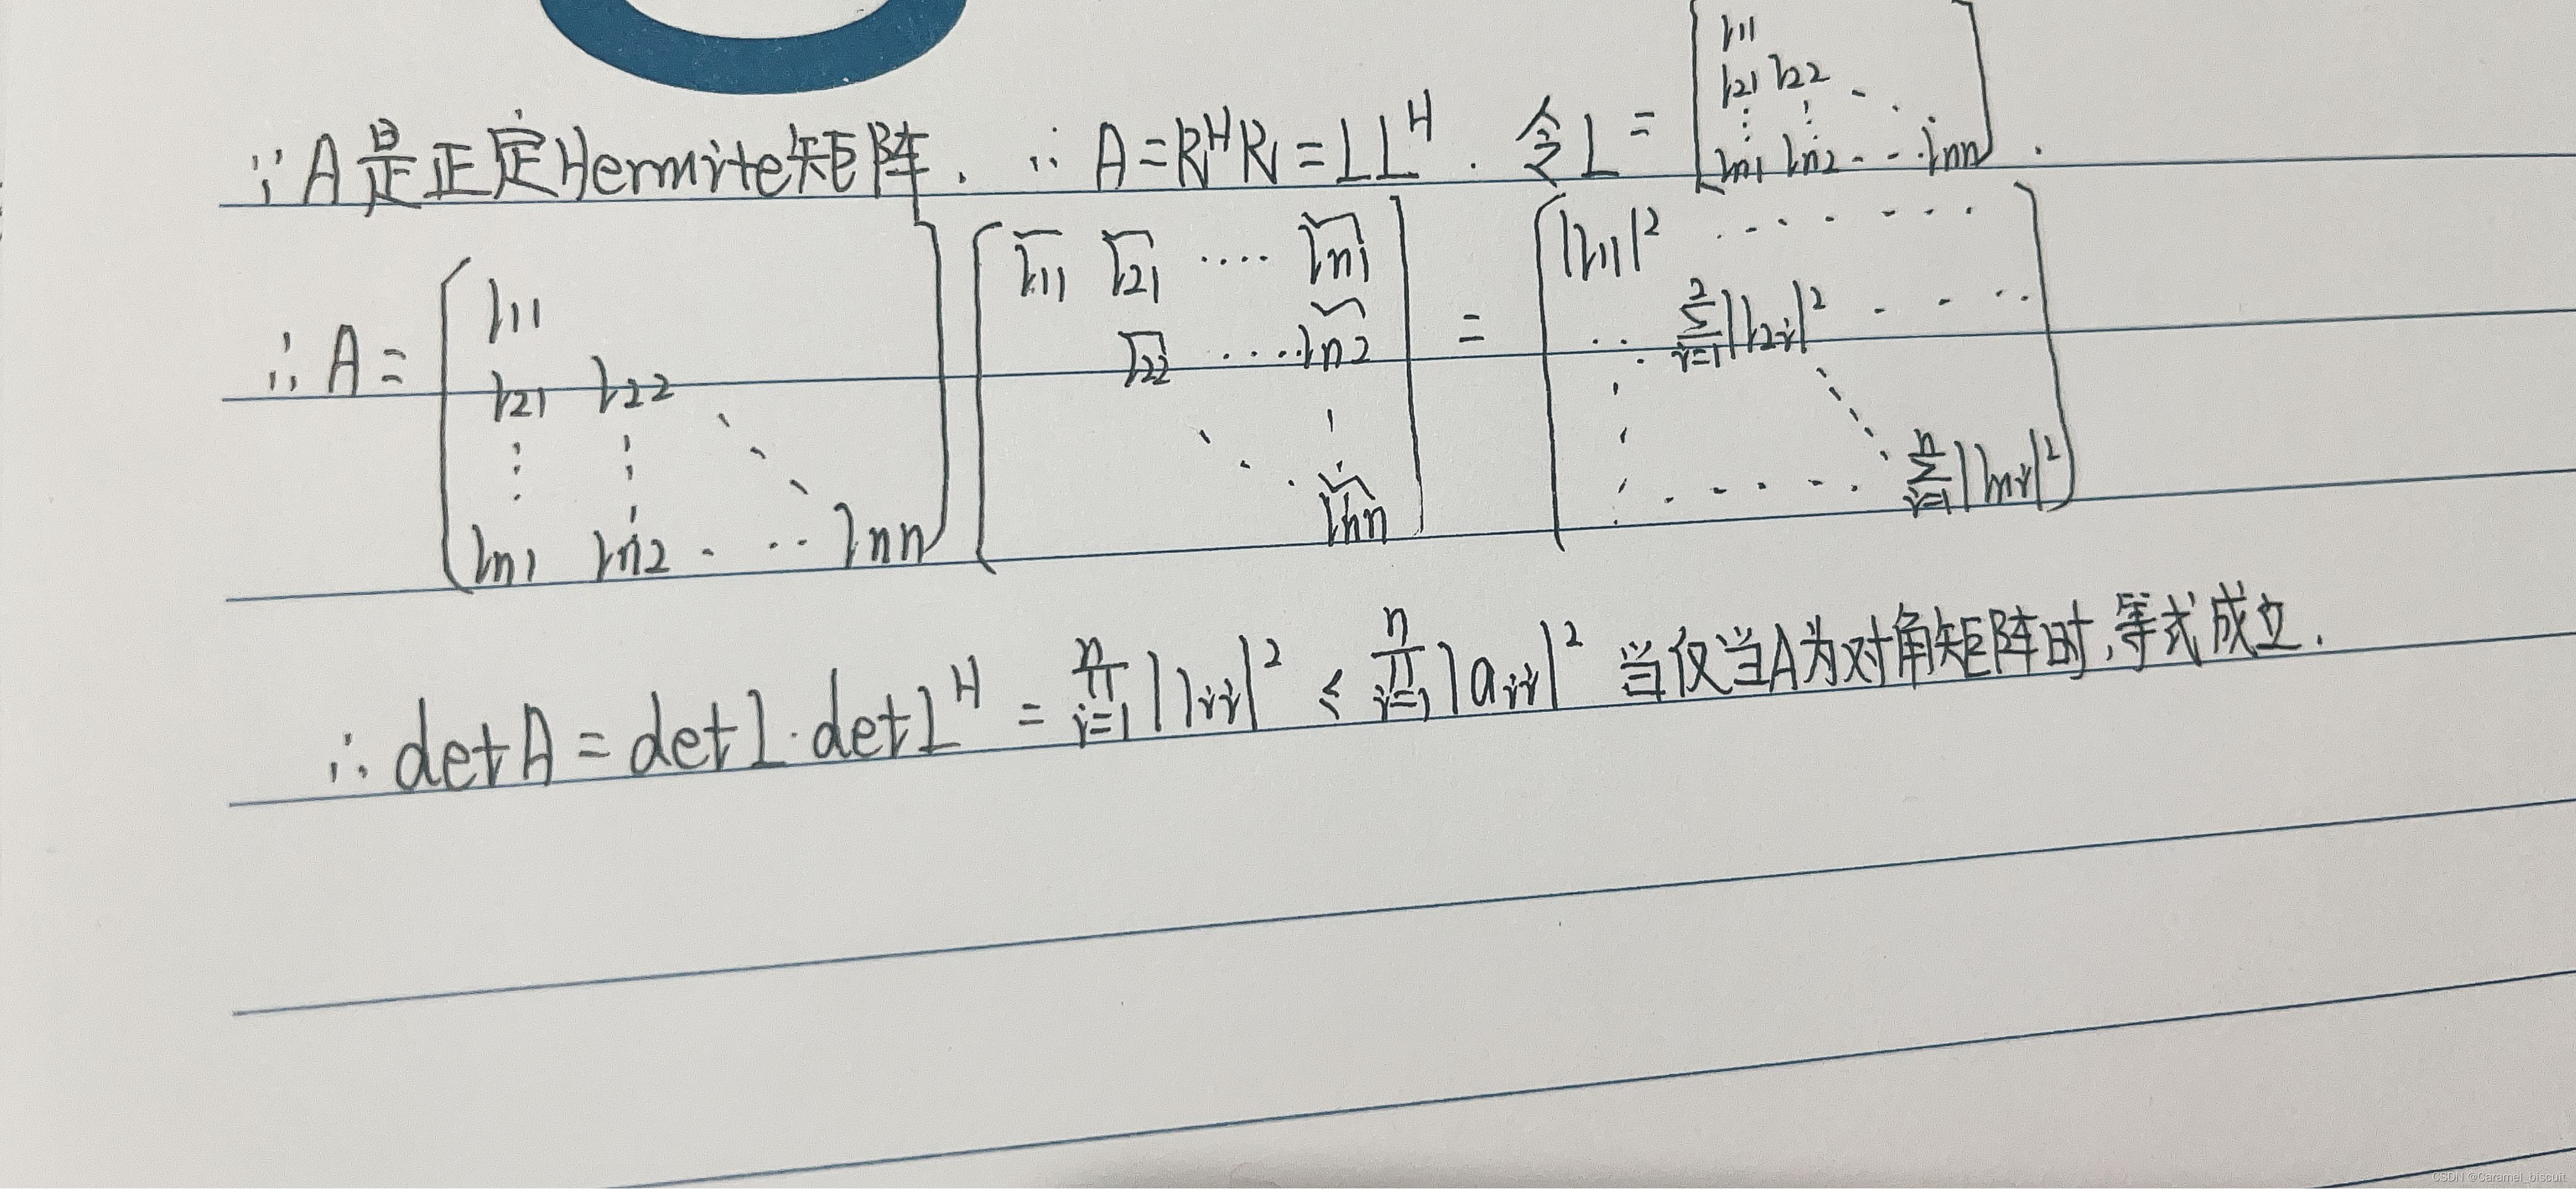 ∵A是正定Hermite矩阵. ∴ A=R^H R=LL^H. 令L=[l11; l21 l22 ⋱; ⋮ ⋮; ln1 ln2 ... lnn].
∴ A=[l11; l21 l22 ⋱; ⋮ ⋮; ln1 ln2 ... lnn][l̅11 l̅21 .... l̅n1; l̅22 .... l̅n2; ⋱ ⋮; l̅nn]=[|l11|² ......; ... ∑_{i=1}^{2}|l2i|² ....; ⋮ ...... ∑_{i=1}^{n}|lni|²]
∴ detA=detL·detL^H=∏_{i=1}^{n}|lii|² ≤ ∏_{i=1}^{n}|aii|² 当仅当A为对角矩阵时,等式成立.
CSDN @Caramel_biscuit